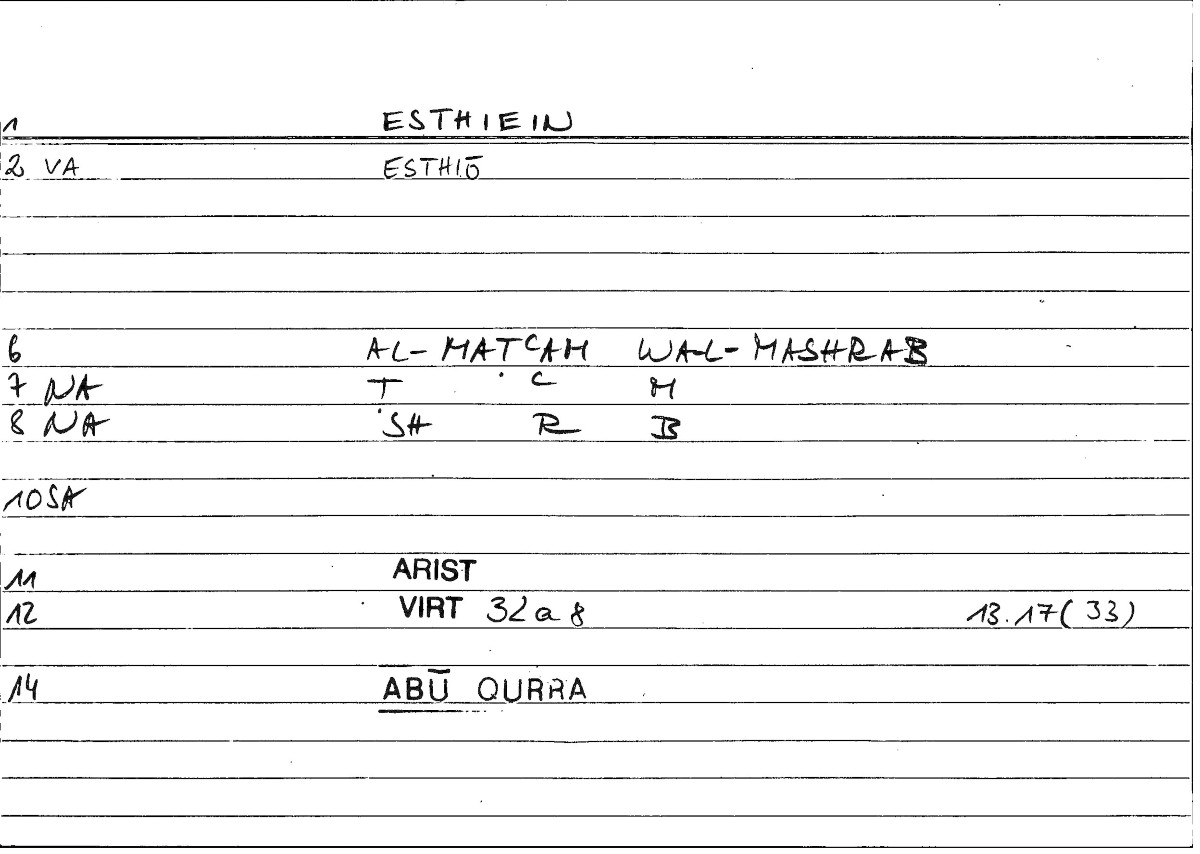 1 ESTHIEIN
2 VA ESTHIŌ
6 AL-MATCAM WAL-MASHRAB
7 NA T C M
8 NA SH R B
10 SA
11 ARIST
12 VIRT 32a8 13.17(33)
14 ABŪ QURRA